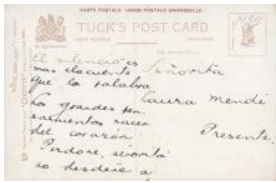 CARTE POSTALE UNION POSTALE UNIVERSELLE
TUCK'S POST CARD
CARTE POSTALE
El silencio es
mas elocuente
que la palabra
Los grandes pen
samientos nacen
del corazón
Perdone, señorita
no desdeñe a
Señorita
Laura Mendi
Presente.